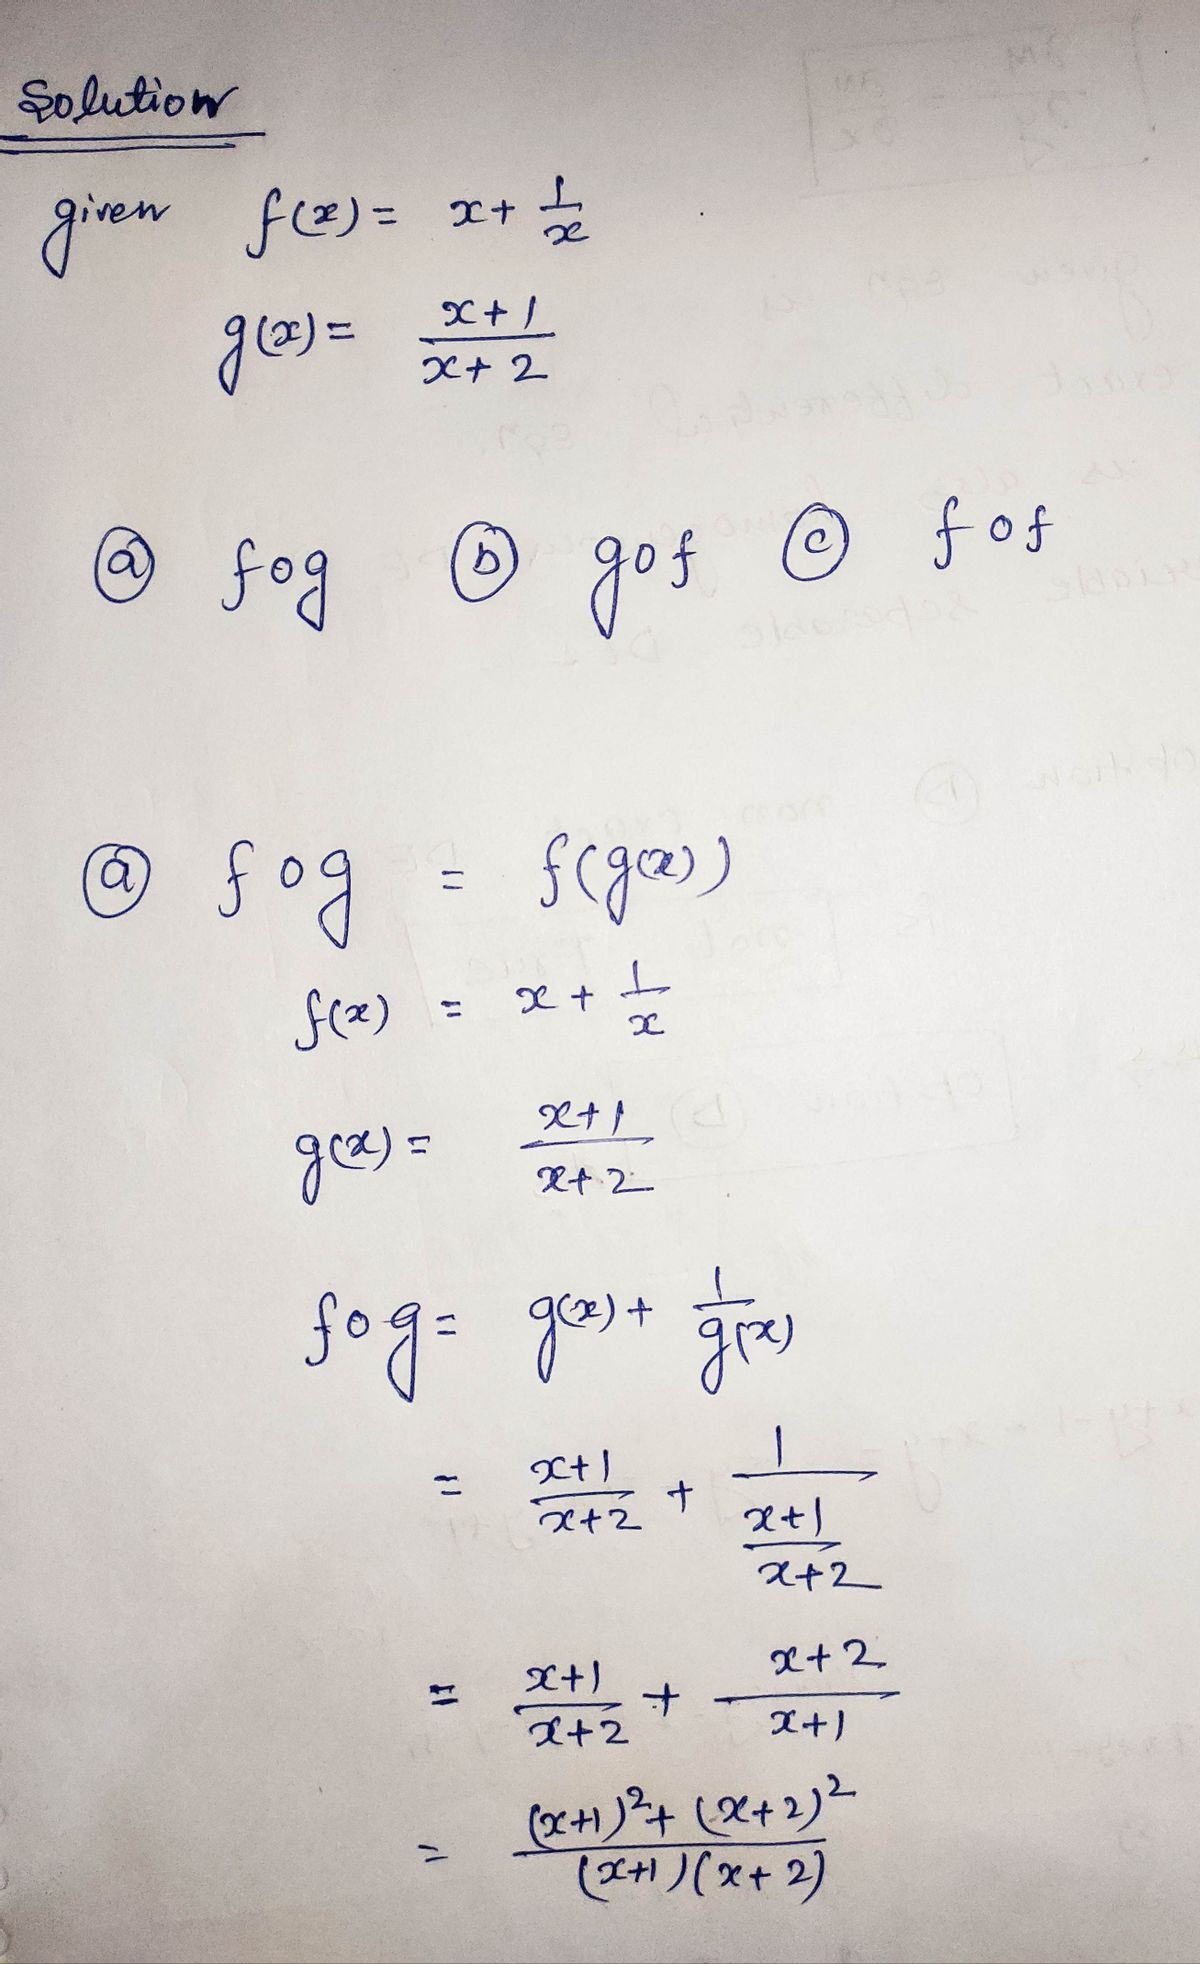 Solution
given f(x) = x + 1/x
g(x) = (x+1)/(x+2)
ⓐ fog ⓑ gof ⓒ fof
ⓐ fog = f(g(x))
f(x) = x + 1/x
g(x) = (x+1)/(x+2)
fog = g(x) + 1/g(x)
= (x+1)/(x+2) + 1/((x+1)/(x+2))
= (x+1)/(x+2) + (x+2)/(x+1)
= ((x+1)² + (x+2)²)/((x+1)(x+2))